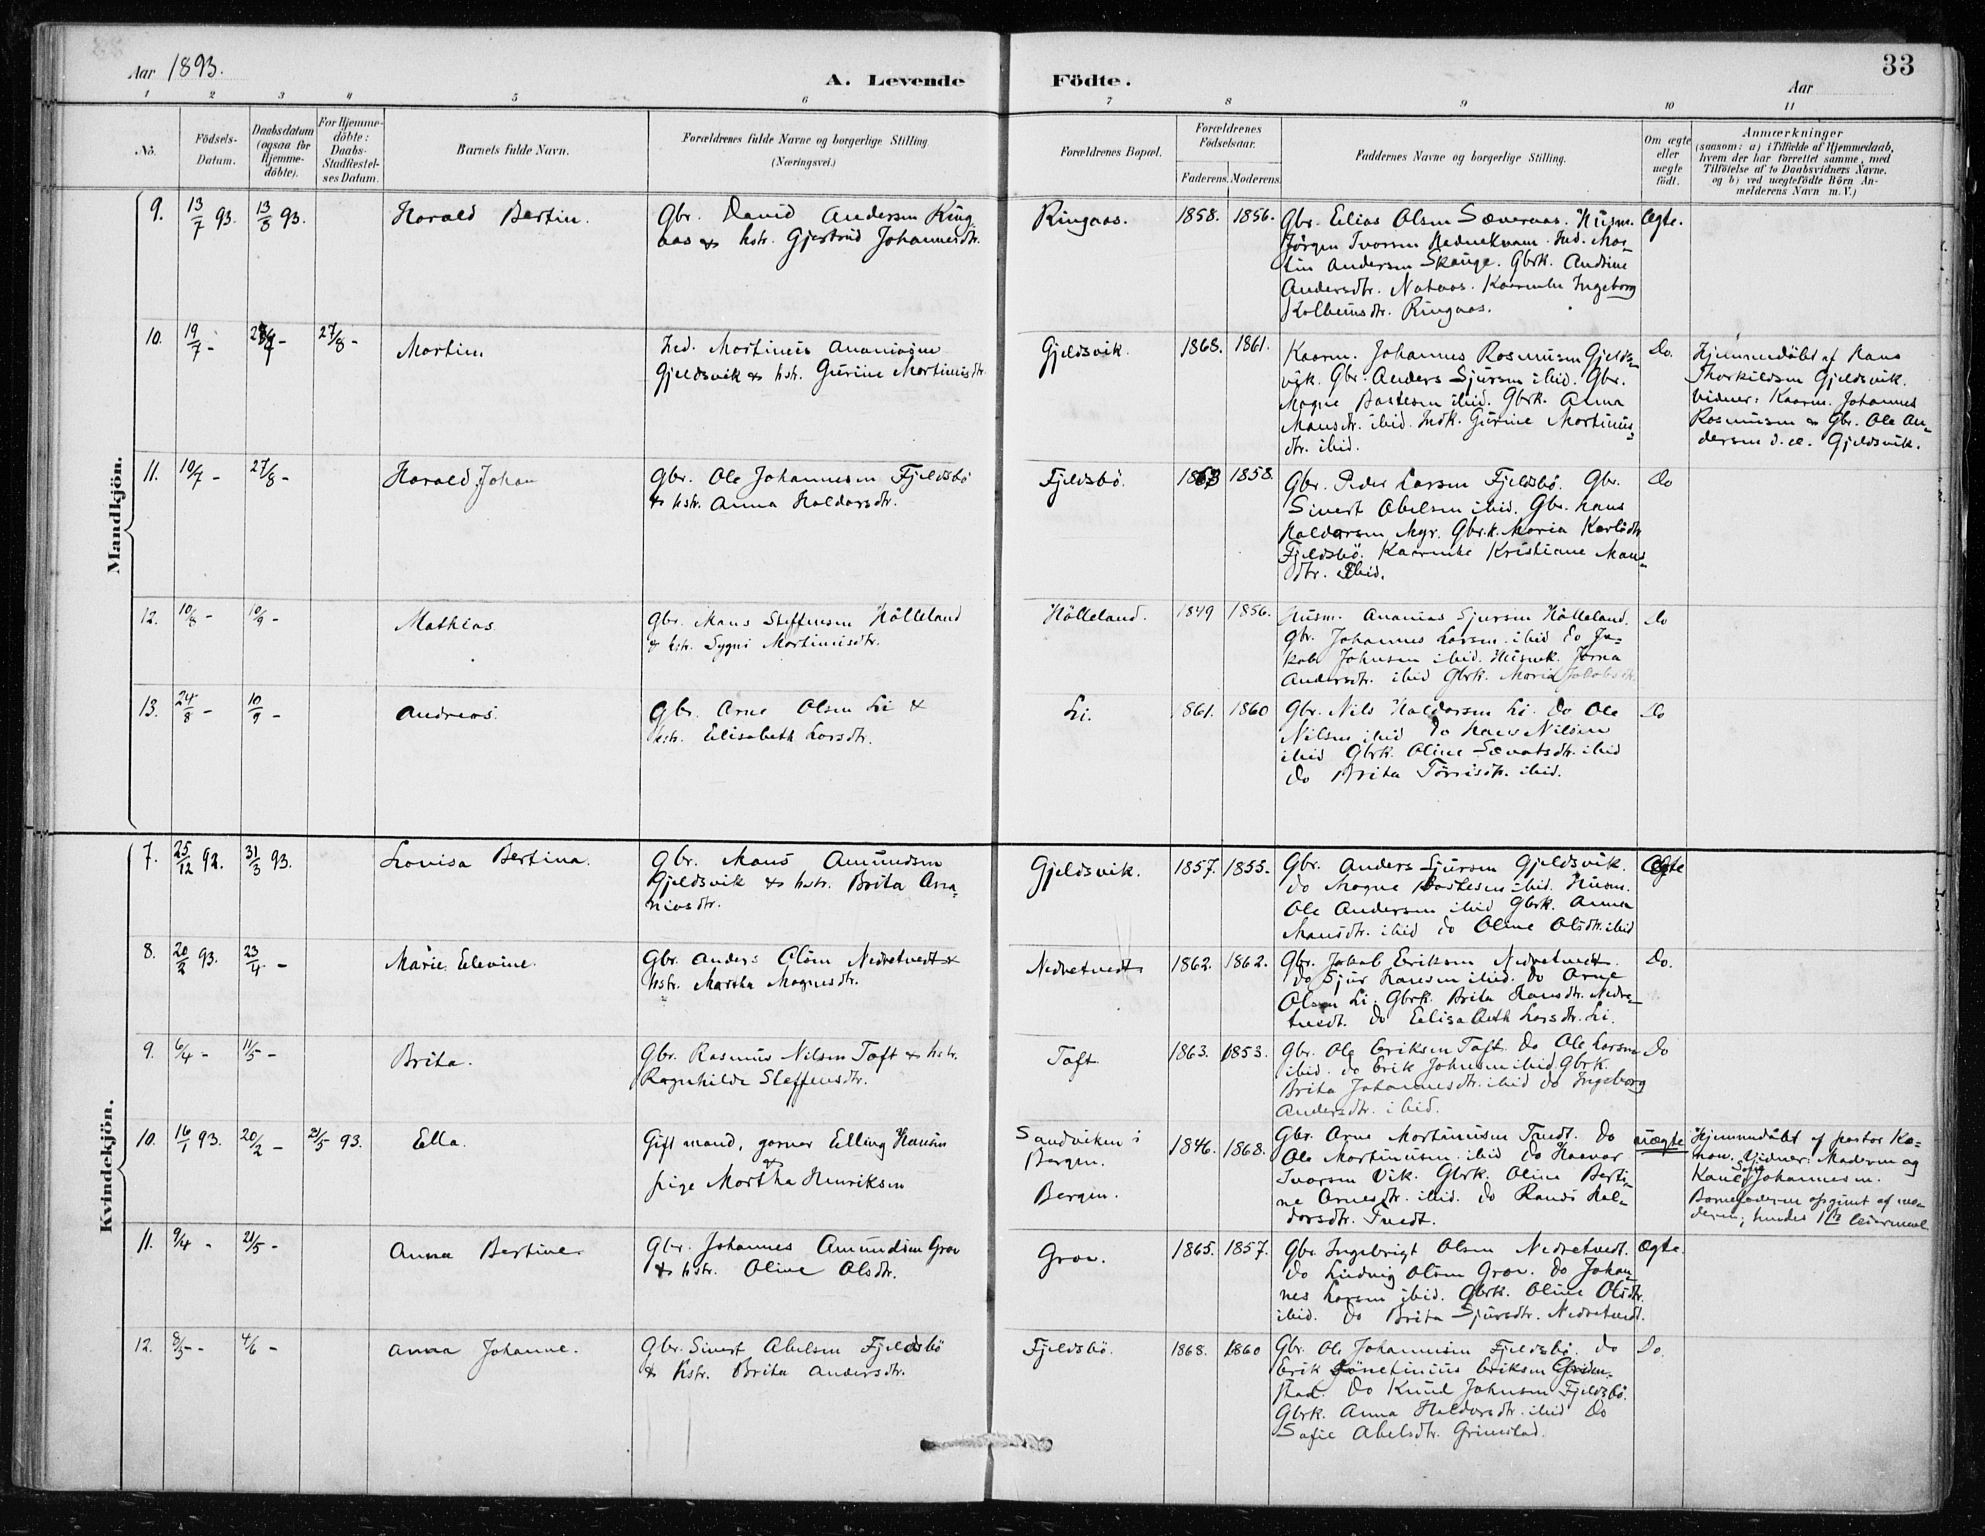 33
Aar 1893.
A. Levende Födte.
Aar
1 2 3 4 5 6 7 8 9 10 11
No.
Födsels-
Datum.
Daabsdatum
(ogsaa for
Hjemme-
döbte).
For Hjemme-
döbte:
Daabs-
Stadfæstel-
ses Datum.
Barnets fulde Navn.
Forældrenes fulde Navne og borgerlige Stilling
(Næringsvei.)
Forældrenes Bopæl.
Forældrenes
Födselsaar.
Faderens. Moderens.
Faddernes Navne og borgerlige Stilling.
Om ægte
eller
uægte
födt.
Anmærkninger
(saasom: a) i Tilfælde af Hjemmedaab,
hvem der har forrettet samme, med
Tilföielse af to Daabsvidners Navne,
og b) ved uægtefödte Börn An-
melderens Navn m. V.)
Mandkjön.
9. 13/7 93. 13/8 93.
Harald Bertin.
Gbr. David Andersen Ring
aas & hstr. Gjertrud Johannesdtr.
Ringaas.
1858. 1856.
Gbr. Elias Olsen Sævereas. Husm.
Jörgen Ivarsen Nednekvam. Ind. Mar-
tin Andersen Skauge. Gbrk. Andrine
Andersdtr. Nataas. Kaarmke Ingeborg
Kolbeinsdtr. Ringaas.
Ægte.
10. 19/7 - 27/8 -
Martin.
Ind. Martinus Ananiasen
Gjeldsvik & hstr. Gurine Martinusdtr.
Gjeldsvik.
1868. 1861.
Kaarm. Johannes Rasmusen Gjelds-
vik. Gbr. Anders Sjursen ibid. Gbr.
Magne Bastesen ibid. Gbrk. Anna
Mansdtr. ibid. Indk. Gurine Martinus-
dtr. ibid.
Do.
Hjemmedöbt af Hans
Thorkildsen Gjeldsvik.
Vidner: Kaarm. Johannes
Rasmusen & Gbr. Ole An-
dersen d. æ. Gjeldsvik.
11. 10/7 - 27/8 -
Harald Johan
Gbr. Ole Johannesen Fjeldsbö
& hstr. Anna Haldorsdtr.
Fjeldsbö.
1863 1858.
Gbr. Peder Larsen Fjeldsbö. Gbr.
Sivert Abelsen ibid. Gbr. Hans
Haldorsen Myr. Gbrk. Maria Karlsdtr
Fjeldsbö. Kaarmke Kristiane Mans-
dtr. Ibid.
Do
12. 10/8 - 10/9 -
Mathias.
Gbr. Mans Steffensen Hölleland
& hstr. Sygni Martinusdtr.
Hölleland.
1849 1856.
Husm. Ananias Sjursen Hölleland.
Gbr. Johannes Larsen ibid Do Ja-
kob Johnsen ibid. Husmk. Jorna
Andersdtr. ibid Gbrk. Maria Jakobsdtr.
Do
13. 24/8 - 10/9 -
Andreas.
Gbr. Arne Olsen Li &
hstr. Elisabeth Larsdtr.
Li.
861. 1860
Gbr. Nils Haldorsen Li. Do Ole
Nilsen ibid Do Hans Nilsen
ibid Gbrk. Oline Sævatsdtr. ibid
Do Brita Törrisdtr. ibid.
Do
Kvindekjön.
7. 25/12 92. 31/3 93.
Lovisa Bertina.
Gbr. Mans Amundsen
Gjeldsvik & hstr. Brita Ana-
niasdtr.
Gjeldsvik.
1857. 1855.
Gbr. Anders Sjursen Gjeldsvik.
Do Magne Bastesen ibid. Husm.
Ole Andersen ibid Gbrk. Anna
Mansdtr. ibid Do Oline Olsdtr. ibid
Ægte
8. 20/2 93. 23/4 -
Marie Elevine.
Gbr. Anders Olsen Nedretvedt &
hstr. Martha Magnesdtr.
Nedretvedt
1862. 1862.
Gbr. Jakob Eriksen Nedretvedt.
Do Sjur Hansen ibid. Do Arne
Olsen Li. Gbrk. Brita Hansdtr. Nedre-
tvedt. Do Elisabeth Larsdtr. Li.
Do.
9. 6/4 - 11/5 -
Brita.
Gbr. Rasmus Nilsen Toft & hstr.
Ragnhilde Steffensdtr.
Toft
1863. 1853.
Gbr. Ole Eriksen Toft. Do Ole Larsen
ibid. Do Erik Johnsen ibid. Gbrk.
Brita Johannesdtr. ibid Do Ingeborg
Andersdtr. ibid.
Do
10. 16/1 93. 20/2 - 21/5 93.
Ella.
Gift mand, garver Elling Hansen
&
pige Martha Henriksen
Sandviken i
Bergen.
Bergen.
1846. 1868.
Gbr. Arne Martinusen Tvedt. Do
Ole Martinusen ibid Do Haavar
Ivarsen Vik. Gbrk. Oline Berti-
ne Arnesdtr. ibid. Do Randi Hal-
dorsdtr. Tvedt.
uægte
Hjemmedöbt af pastor Ka-
now. Vidner: Moderen og
Kane Sofie Johannesen.
Barnefaderen opgivet af mo-
deren; hendes 1ste leiermaal
11. 9/4 - 21/5 -
Anna Bertine
Gbr. Johannes Amundsen Grov
& hstr. Oline Olsdtr.
Grov.
1865. 1857.
Gbr. Ingebrigt Olsen Nedretvedt.
Do Ludvig Olsen Grov. Do Johan-
nes Larsen ibid. Gbrk. Oline Olsdtr.
ibid. Do Brita Sjursdtr. Nedretvedt.
Ægte.
12. 8/5 - 4/6 -
Anna Johanne.
Gbr. Sivert Abelsen Fjeldsbö
& hstr. Brita Andersdtr.
Fjeldsbö.
1868. 1860
Gbr. Ole Johannesen Fjeldsbö. Do
Erik Eriksen
Do Knud Johnsen Fjeldsbö.
Gbrk. Anna Haldorsdtr. ibid Do
Sofie Abelsdtr. Grimstad.
Do.